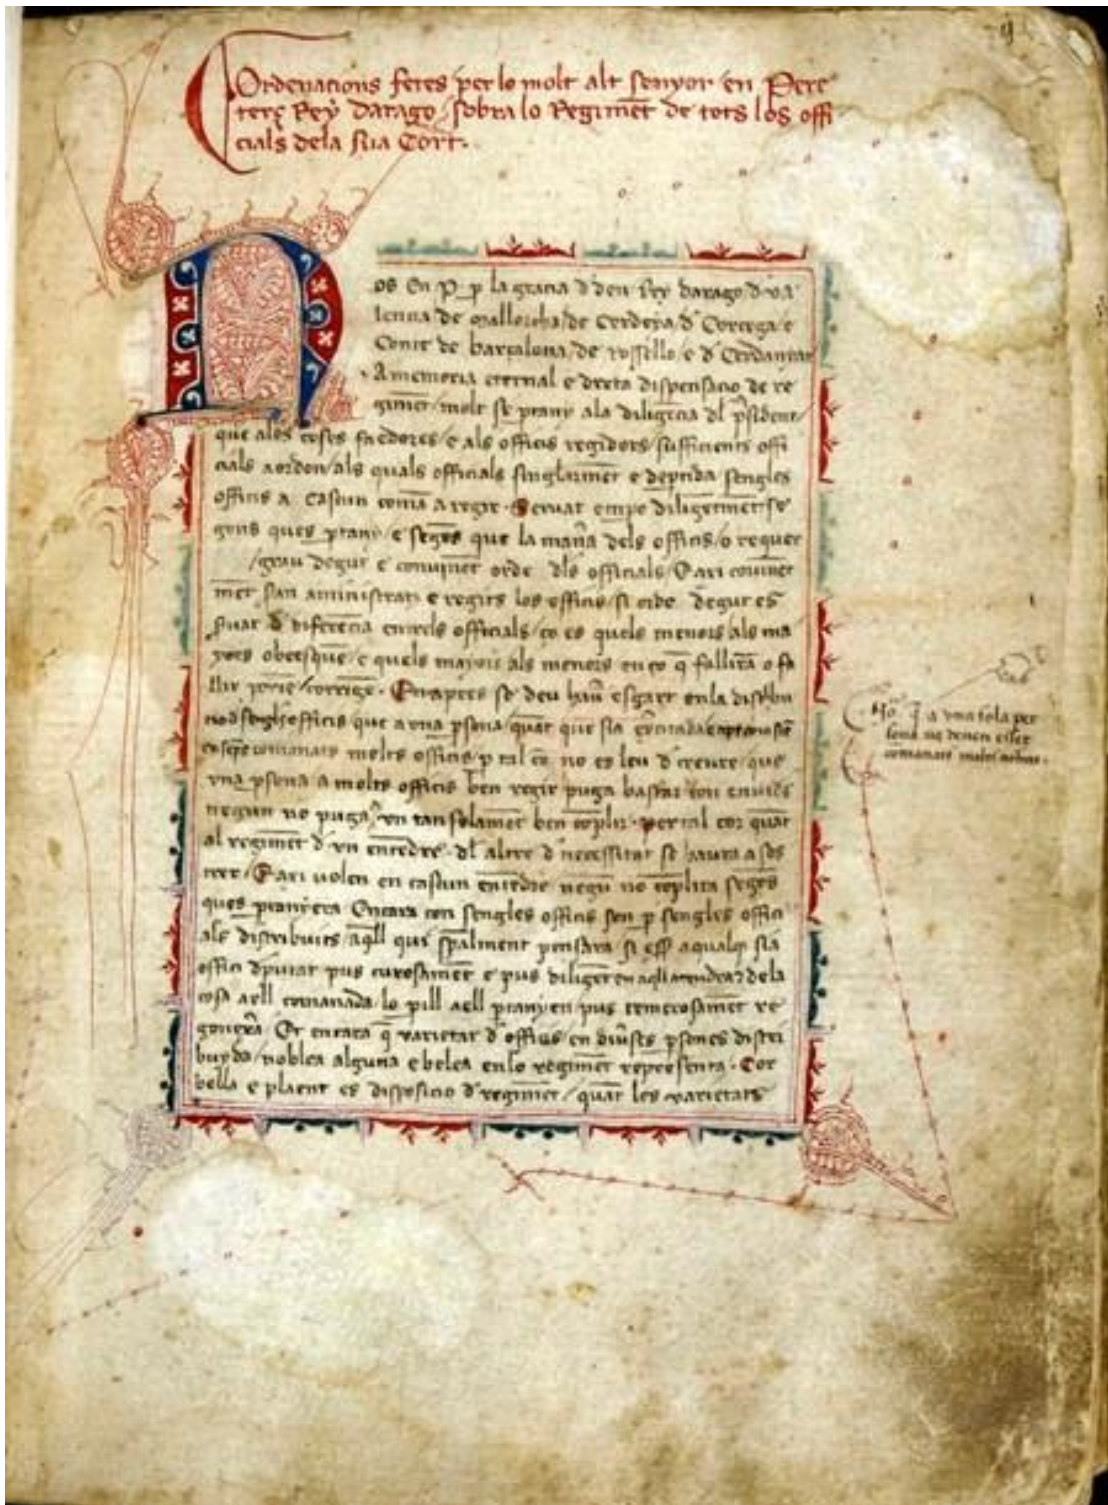 Ordenacions fetes per lo molt alt senyor en Pere
terç Rey darago sobra lo Regimēt de tots los offi
cials dela sua Cort.
os En P. p la gracia d deu Rey darago d va
lencia de Mallorcha de Cerdenya d Corcega e
Comte de barcalona de rossello e d Cerdanya
A memoria eternal e dreta dispensacio de re
gimēt molt se ptany ala diligēcia dl psident
que ales coses faedores e als officis regidors sufficients offi
cials aordon als quals officials singlarmēt e deptida sengles
officis a cascun comā a regir. Servat empo diligētmēt se
gons ques ptany e segōs que la mana dels officis o requer
grau degut e convinēt orde dls officials Cari covinēt
mēt san aministrats e regits los officis si orde degut es
svat d diferēcia entrels officials ço es quels menors als ma
yors obeesquē e quels majors als menors en ço q fallirā o fa
llir poriē corrigē. Enapres se deu hau esgart enla distribu
cio d sengls officis que a vna psona quāt que sia
comanats molts officis p tal cō no es leu d creure que
vna psona a molts officis ben regir puga bastar con envides
negun ne puga vn tan solamēt ben cōplir. Per tal cor quāt
al regimēt d vn entēdre dl altre d necessitat se haura a sos
trer. Cari volen en cascun entēdre negū no cōplira segōs
ques ptanyera Encara con sengles officis son p sengles offici
als distribuits aqll qui spalment pensara si ess a qualq sia
offici dputat pus curosamēt e pus diligēt en aqll atendra dela
cosa aell comanada lo pill aell ptanyen pus temerosamēt re
gonexra Et encara q varietat d officis en diuses psones distri
buyda noblea alguna e belea enlo regimēt representa. Cor
bella e plaent es disposicio d regimēt quāt les varietats
No. q a vna sola per
sona no deuen esser
comanats molts officis.